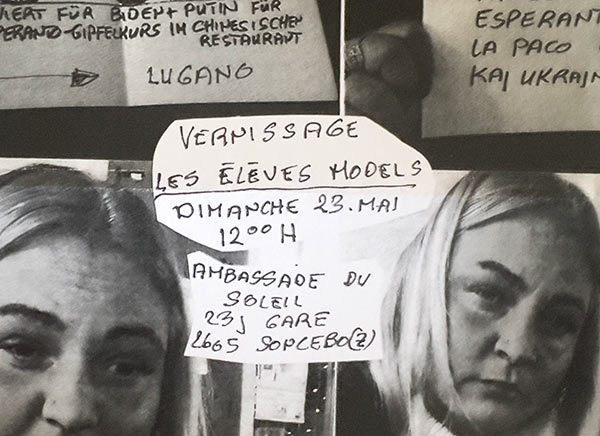 IERT FÜR BIDEN + PUTIN FÜR
PERANTO-GIPFELKURS IM CHINESISCHEN
RESTAURANT
LUGANO
ESPERANT
LA PACO
KAJ UKRAJN
VERNISSAGE
LES ÉLÉVES MODELS
DIMANCHE 23. MAI
12⁰⁰ H
AMBASSADE DU
SOLEIL
23, GARE
2605 SONCEBO(Z)